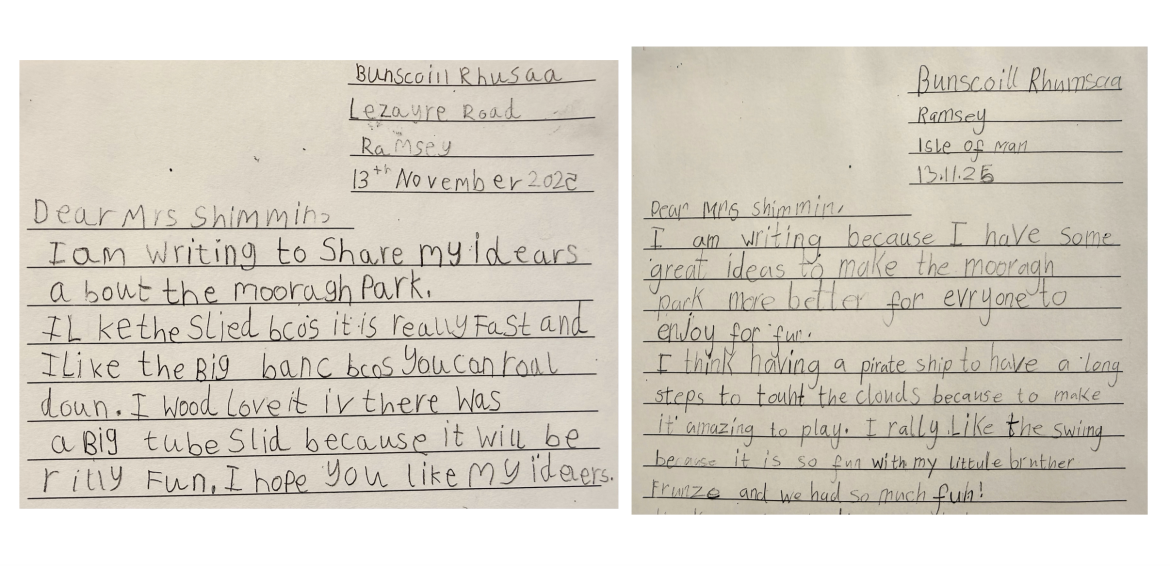 Bunscoill Rhusaa
Lezayre Road
Ramsey
13th November 2025
Dear Mrs Shimmin,
I am writing to Share my idears
a bout the mooragh Park.
I L ke the Slied bcos it is really FaSt and
I Like the Big banc bcos You can roal
doun. I wood Love it iv there was
a Big tube Slid because it will be
ritly Fun, I hope You like My ideers.
Bunscoill Rhumsaa
Ramsey
Isle of Man
13.11.25
Dear Mrs Shimmin,
I am writing because I have some
great ideas to make the mooragh
park more better for evryone to
enjoy for fun.
I think having a pirate ship to have a long
steps to touht the clouds because to make
it amazing to play. I rally Like the swing
because it is so fun with my littule bruther
Frunze and we had so much fun!